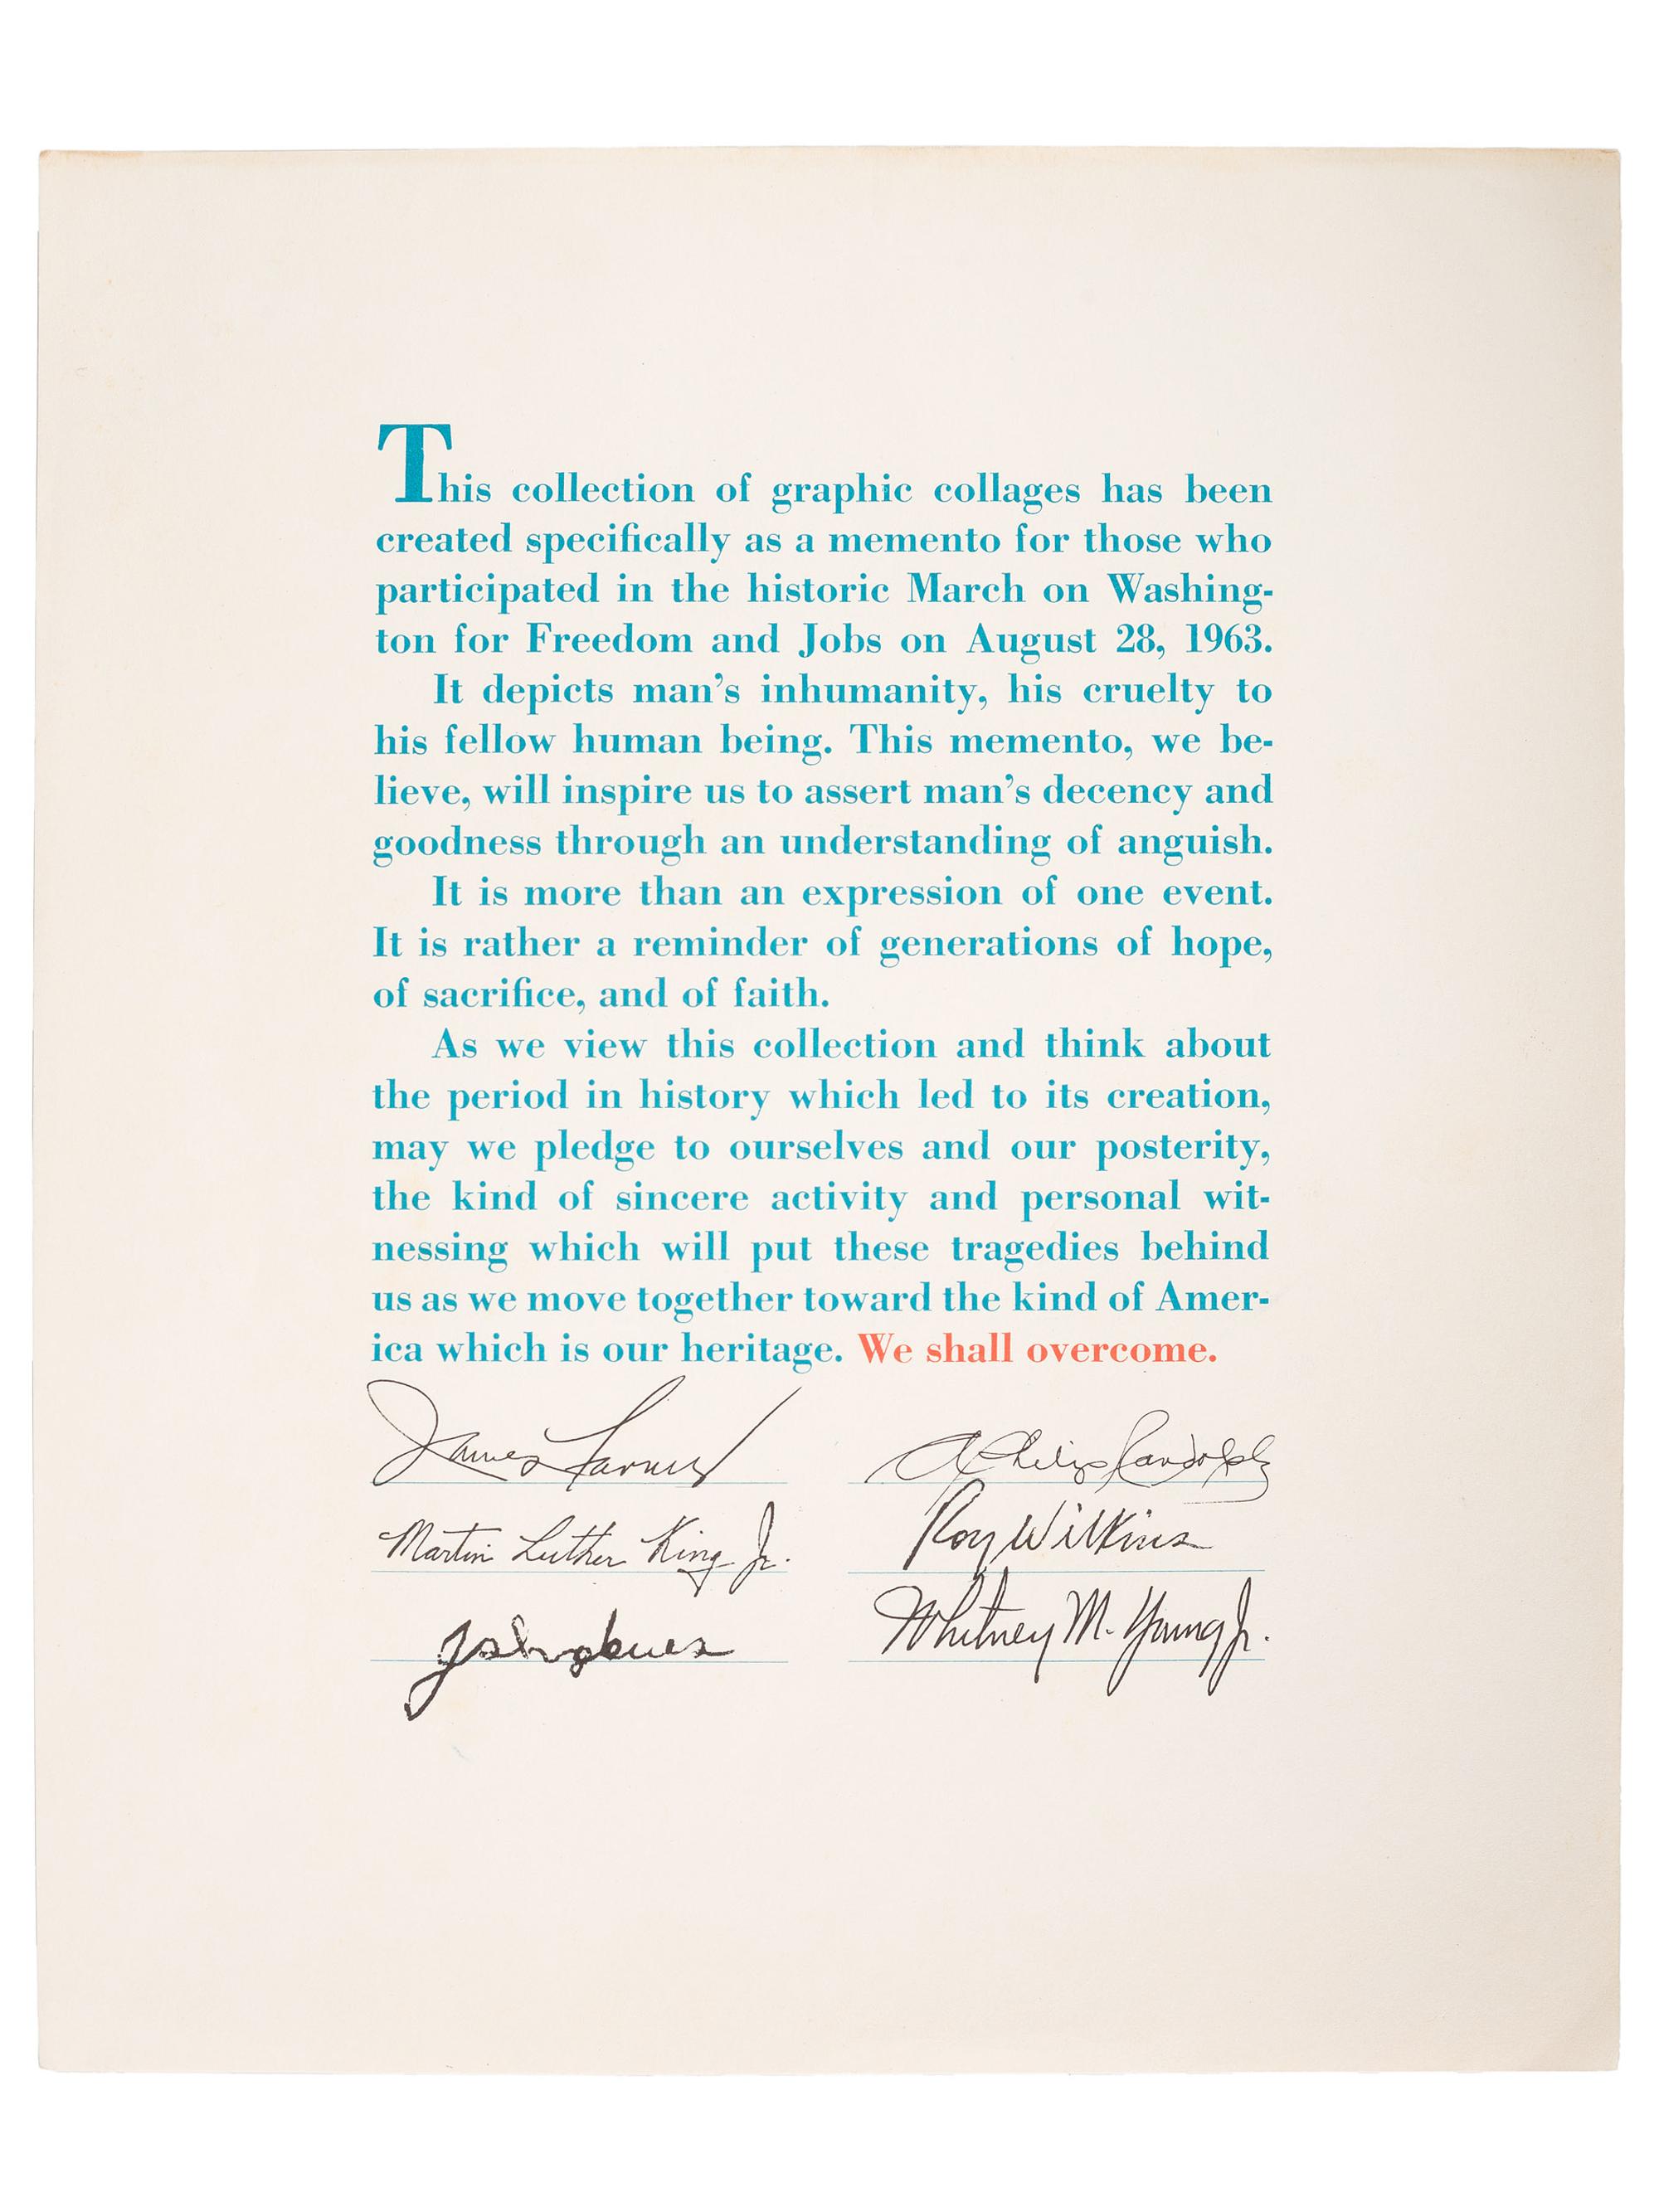 This collection of graphic collages has been
created specifically as a memento for those who
participated in the historic March on Washing-
ton for Freedom and Jobs on August 28, 1963.
It depicts man's inhumanity, his cruelty to
his fellow human being. This memento, we be-
lieve, will inspire us to assert man's decency and
goodness through an understanding of anguish.
It is more than an expression of one event.
It is rather a reminder of generations of hope,
of sacrifice, and of faith.
As we view this collection and think about
the period in history which led to its creation,
may we pledge to ourselves and our posterity,
the kind of sincere activity and personal wit-
nessing which will put these tragedies behind
us as we move together toward the kind of Amer-
ica which is our heritage. We shall overcome.
James Farmer
A Philip Randolph
Martin Luther King Jr.
Roy Wilkins
John Lewis
Whitney M. Young Jr.